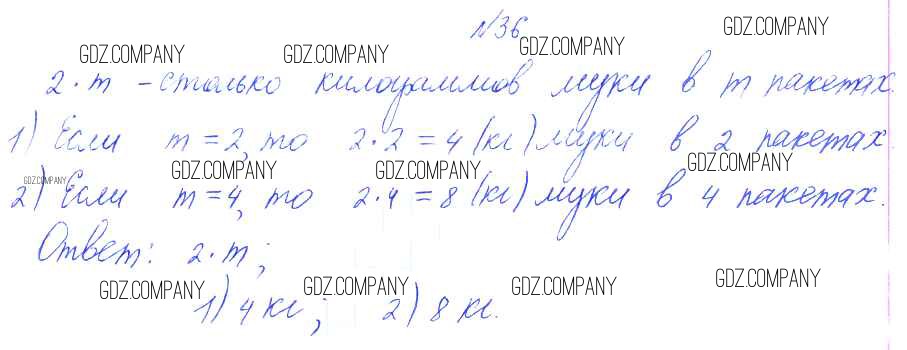 №36
GDZ.COMPANY GDZ.COMPANY GDZ.COMPANY GDZ.COMPANY
2·m – столько килограммов муки в m пакетах.
1) Если m = 2, то 2·2 = 4 (кг) муки в 2 пакетах.
GDZ.COMPANY GDZ.COMPANY GDZ.COMPANY GDZ.COMPANY
2) Если m = 4, то 2·4 = 8 (кг) муки в 4 пакетах.
Ответ: 2·m;
GDZ.COMPANY GDZ.COMPANY GDZ.COMPANY GDZ.COMPANY
1) 4 кг; 2) 8 кг.